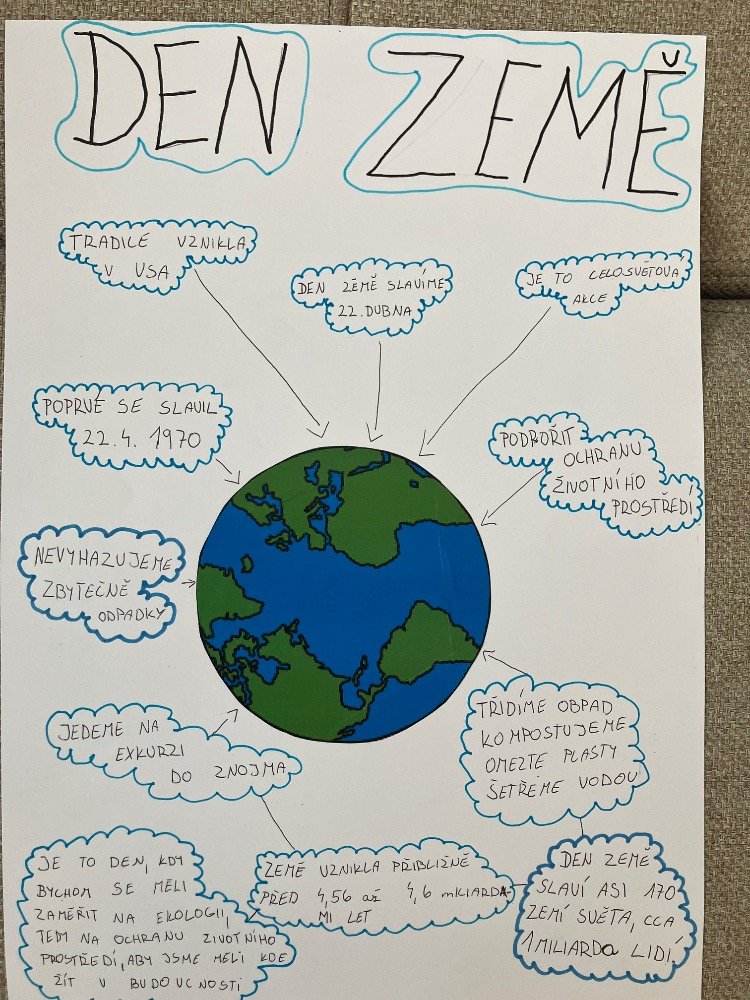 DEN ZEMĚ
TRADICE VZNIKLA
V USA
DEN ZĚMĚ SLAVÍME
22. DUBNA
JE TO CELOSVĚTOVÁ
AKCE
POPRVÉ SE SLAVIL
22.4. 1970
PODBOŘIT
OCHRANU
ŽIVOTNÍHO
PROSTŘEDÍ
NEVYHAZUJEME
ZBYTEČNĚ
ODPADKY
JEDEME NA
EXKURZI
DO ZNOJMA
TŘÍDÍME OBPAD
KOMPOSTUJEME
OMEZTE PLASTY
ŠETŘEME VODOU
JE TO DEN, KDY
BYCHOM SE MĚLI
ZAMĚŘIT NA EKOLOGII,
TEDY NA OCHRANU ŽIVOTNÍHO
PROSTŘEDÍ, ABY JSME MĚLI KDE
ŽÍT V BUDOUCNOSTI
ZEMĚ VZNIKLA PŘIBLIŽNĚ
PŘED 4,56 až 4,6 MILIARDA-
MI LET
DEN ZEMĚ
SLAVÍ ASI 170
ZEMÍ SVĚTA, CCA
1 MILIARDA LIDÍ,